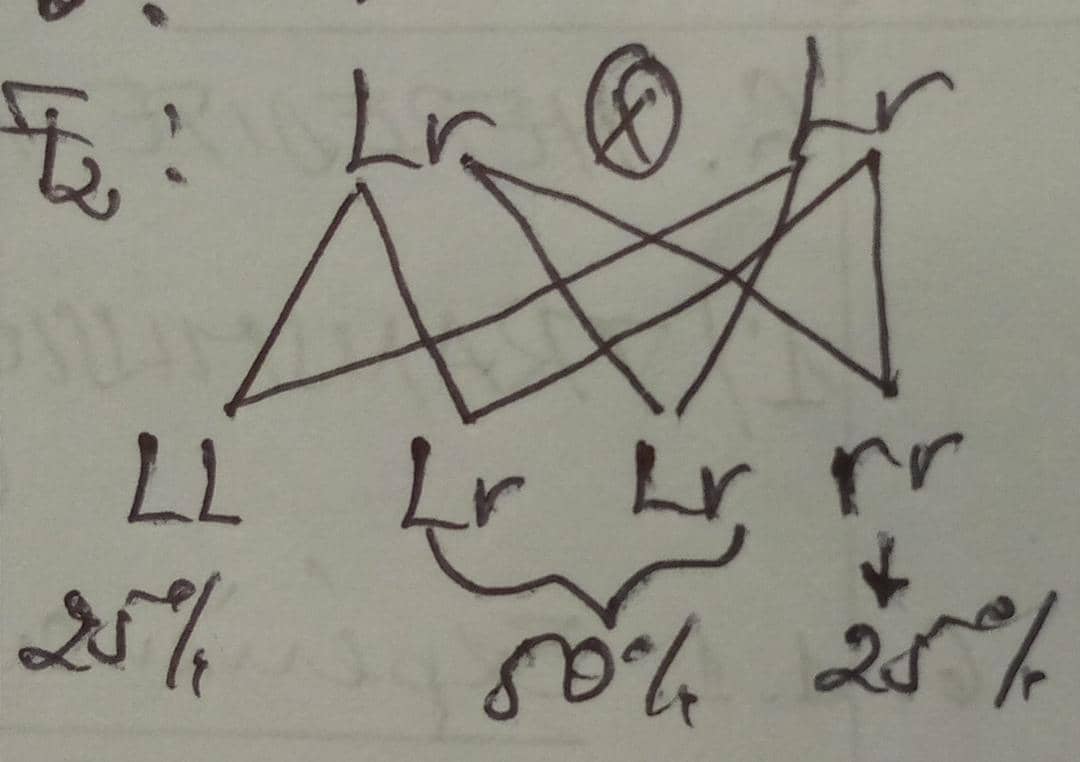 F2 : Lr ⊗ Lr
LL Lr Lr rr
25% 50% 25%